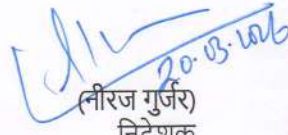 20.03.2026
(नीरज गुर्जर)
निदेशक